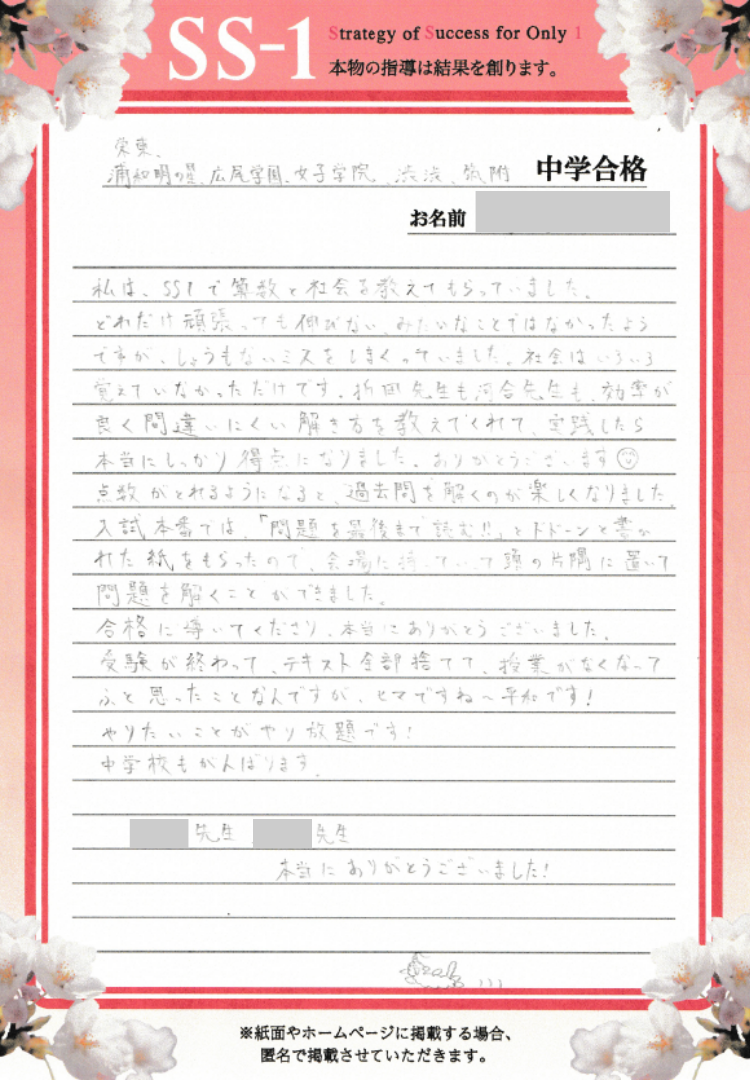 SS-1
Strategy of Success for Only 1
本物の指導は結果を創ります。
栄東、
浦和明の星、広尾学園、女子学院、渋渋、筑附
中学合格
お名前
私は、SS1で算数と社会を教えてもらっていました。
どれだけ頑張っても伸びない、みたいなことではなかったよう
ですが、しょうもないミスをしまくっていました。社会はいろいろ
覚えていなかっただけです。折田先生も河合先生も、効率が
良く間違いにくい解き方を教えてくれて、実践したら
本当にしっかり得点になりました。ありがとうございます
点数がとれるようになると、過去問を解くのが楽しくなりました。
入試本番では、「問題を最後まで読む!!」とドドーンと書か
れた紙をもらったので、会場に持っていって頭の片隅に置いて
問題を解くことができました。
合格に導いてくださり、本当にありがとうございました。
受験が終わって、テキスト全部捨てて、授業がなくなって
ふと思ったことなんですが、ヒマですね〜平和です!
やりたいことがやり放題です!
中学校もがんばります。
先生 先生
本当にありがとうございました!
※紙面やホームページに掲載する場合、
匿名で掲載させていただきます。